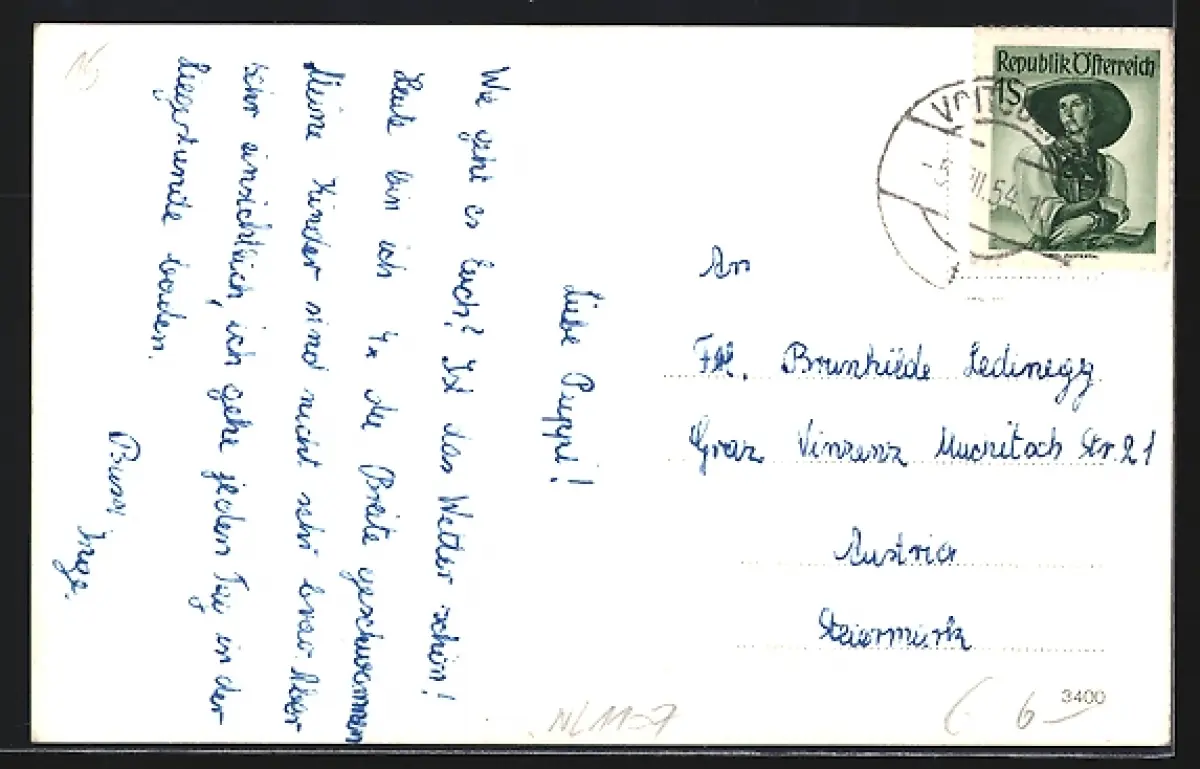 Liebe Puppi!
Wie geht es Euch? Ist das Wetter schön!
Heute bin ich 4x die Breite geschwommen
Meine Kinder sind nicht sehr brav. Aber
sehr ich gehe jeden Tag in der
baden.
Bussi Inge.
Republik Österreich
1S
VOITS
VII.54
An
Frl. Brunhilde Ledinegg
Graz Vinzenz Muchitsch Str. 21
Austria
Steiermark
3400
NL 11-7
6